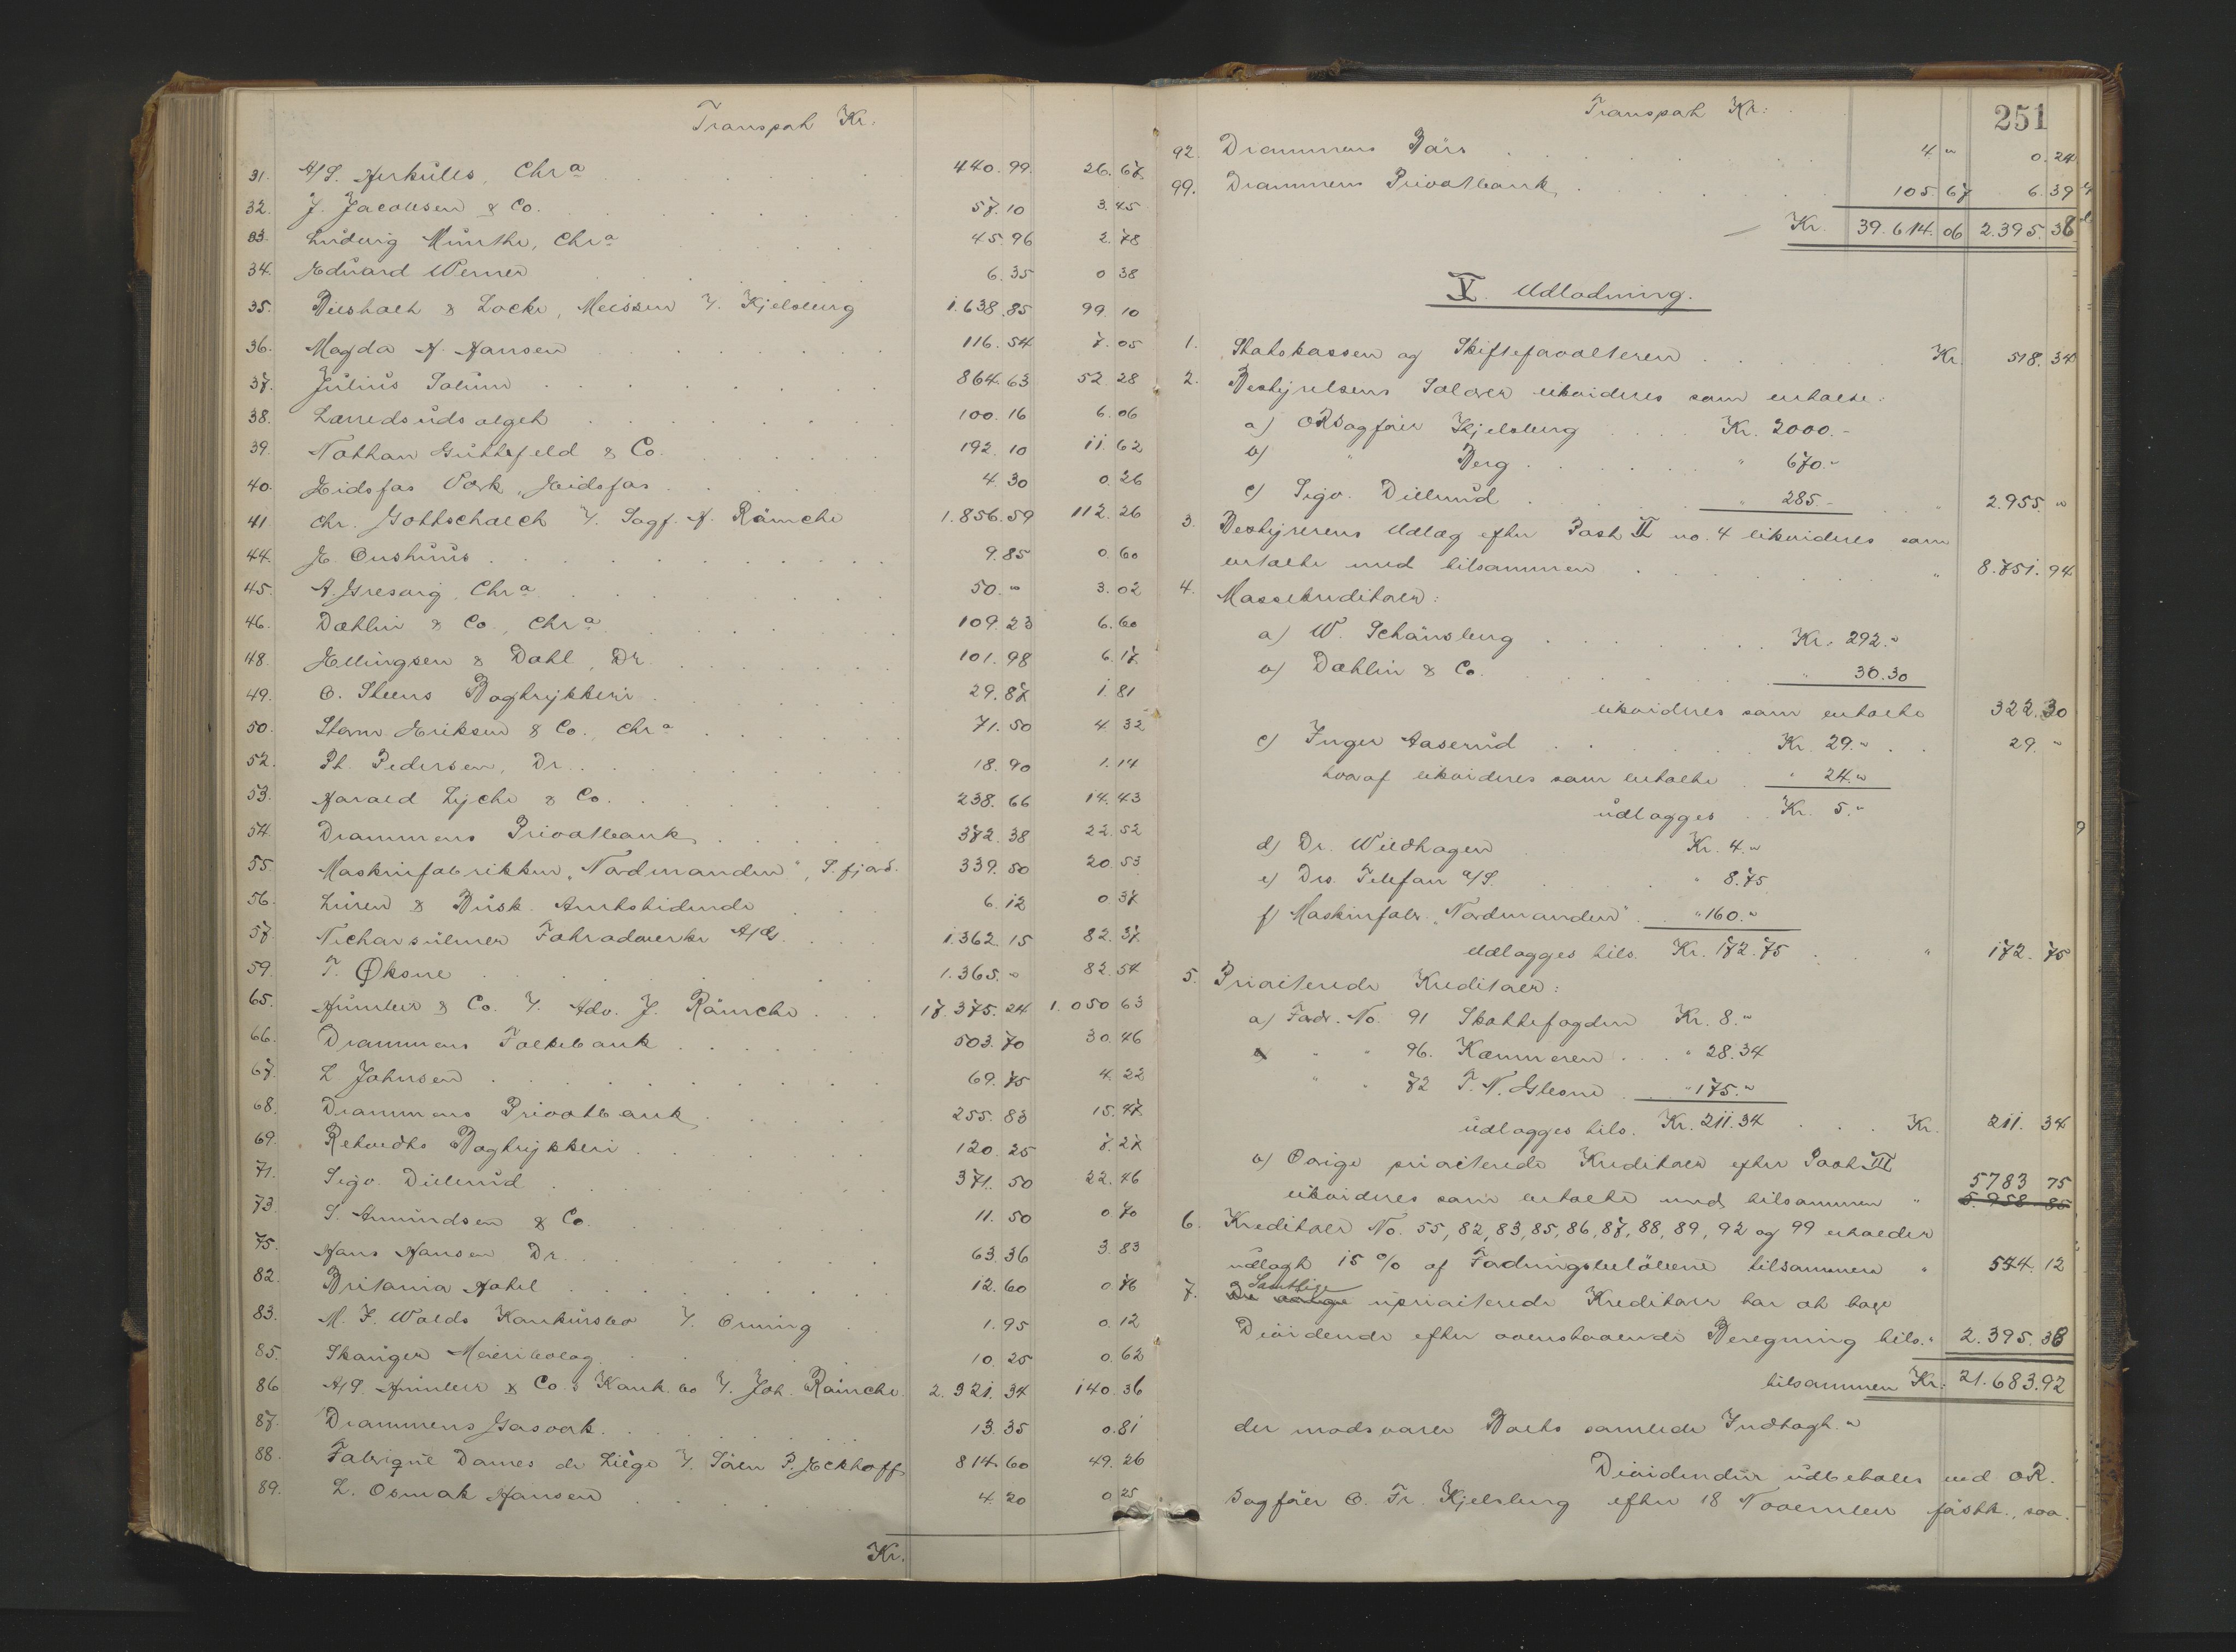 Transport Kr.
31. A/S. Herkules, Chr a 440.99 26.67
32. J. Jacobsen & Co. 57.10 3.45
33. Ludvig Münthe, Chr a 45.96 2.78
34. Edvard Werner 6.35 0 38
35. Biesholt & Locke, Meissen v. Kjelsberg 1.638.85 99.10
36. Magda H. Hansen 116.54 7.05
37. Julius Solum 864.63 52 28
38. Lærredsudsalget 100.16 6.06
39. Nathan Guttfeld & Co. 192.10 11.62
40. Eidsfos Værk, Eidsfos 4.30 0.26
41 Chr. Gottschalch v. Sagf. H. Römcke 1.856.59 112.26
44. E. Onshuus 9.85 0.60
45. A. Gresvig, Chr a 50." 3.02
46. Dæhlin & Co., Chr a 109.23 6.60
48. Ellingsen & Dahl, Dr. 101.98 6.17
49. O. Steens Bogtrykkeri 29.87 1.81
50. Storm Eriksen & Co., Chr a 71.50 4.32
52. Ph. Pedersen, Dr. 18.90 1.14
53. Harald Lyche & Co. 238.66 14.43
54. Drammens Privatbank 372.38 22.52
55. Maskinfabrikken "Nordmanden", S.fjord. 339.50 20.53
56. Busk. Amtstidende 6.12 0 37
57. Neckarsulmer Fahradwerke A/G. 1.362.15 82.37
59. T. Øksne 1.365." 82.54
65. Humber & Co. v. Adv. J. Römcke 17.375.24 1.050 63
66. Drammens Folkebank 503.70 30.46
67. L Johnsen 69.75 4.22
68. Drammens Privatbank 255.83 15.47
69. Bogtrykkeri 120.25 7.27
71. Sigv. Dillerud 371.50 22.46
73. S. Amundsen & Co. 11.50 0 70
75. Hans Hansen Dr. 63.36 3.83
82. Britania Hotel 12.60 0.76
83. M. F. Wolds Konkursbo v. Orning 1.95 0.12
85. Skauger Meieribolag 10.25 0.62
86 A/S. Humber & Co.s Konk.bo v. Joh. Römcke. 2.321.34 140.36
87. Drammens Gasværk. 13.35 0.81
88. Fabrique Dames de Liège v. Sören P. Eckhoff 814.60 49.26
89. L. Osmak Hansen 4.20 0 25
Kr.
251
Transport Kr:
92. Drammens Börs 4 " 0.24
99. Drammens Privatbank 105 67 6.39
Kr. 39.614.06 2.395.38
V. Udlodning.
1. Statskassen og Skifteforvalteren Kr. 518.34
2. Bestyrelsens Salær likvideres som erholdt:
a) ORSagfører Kjelsberg Kr. 2000.-
b) " Berg " 670.-
c) Sigv. Dillerud " 285.- " 2.955."
3. Bestyrerens Udlæg efter Post II no. 4 likvideres som
erholdt med tilsammen " 8.751.94
4. Massekreditorer:
a) W. Schönsberg Kr. 292."
b) Dæhlin & Co. " 30.30
likvideres som erholdt 322.30
c) Inger Aaserud Kr. 29." 29."
hvoraf likvideres som erholdt " 24."
udlægges Kr. 5."
d) Dr. Wildhagen Kr. 4."
e) Drs. Telefon A/S. " 8.75
f) Maskinfabr. "Nordmanden" " 160."
Udlægges tils. Kr. 172.75 " 172.75
5. Prioriterede Kreditorer:
a) Fordr. No. 91 Skattefogden Kr. 8."
" " 96. Kæmneren " 28.34
" " 72 T. N. Glesne " 175."
udlægges tils. Kr. 211.34 Kr. 211.34
b) Övrige prioriterede Kreditorer efter Post III 5783 75
likvideres som erholdt med tilsammen " 5.958 85
6. Kreditorer No. 55, 82, 83, 85, 86, 87, 88, 89, 92 og 99 erholder
udlagt 15 % af Fordringsbelöbene tilsammen " 544.12
Samtlige
7. De övrige uprioriterede Kreditorer har at have
Dividende efter ovenstaaende Beregning tils. " 2.395.38
tilsammen Kr: 21.683.92
der modsvarer Boets samlede Indtægt."
Dividenden udbetales ved OR.
Sagförer O. Fr. Kjelsberg efter 18 November förstk., saa.